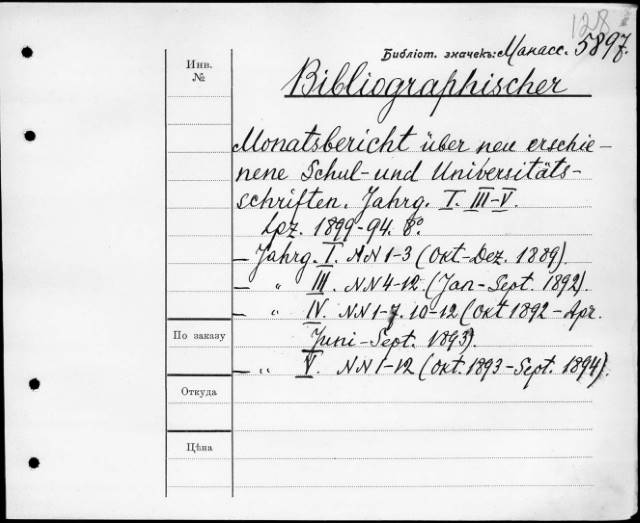 128
Инв.
№
Библіот. значекъ: Манасс. 5897.
Bibliographischer
Monatsbericht über neu erschie-
nene Schul- und Universitäts-
schriften. Jahrg. I. III-V.
Lpz. 1899-94. 8°.
— Jahrg. I. NN 1-3 (Okt-Dez. 1889).
— " III. NN 4-12. (Jan-Sept. 1892).
— " IV. NN 1-7. 10-12 (Okt 1892-Apr.
По заказу
Juni-Sept. 1893).
— " V. NN 1-12 (Okt. 1893-Sept. 1894).
Откуда
Цѣна